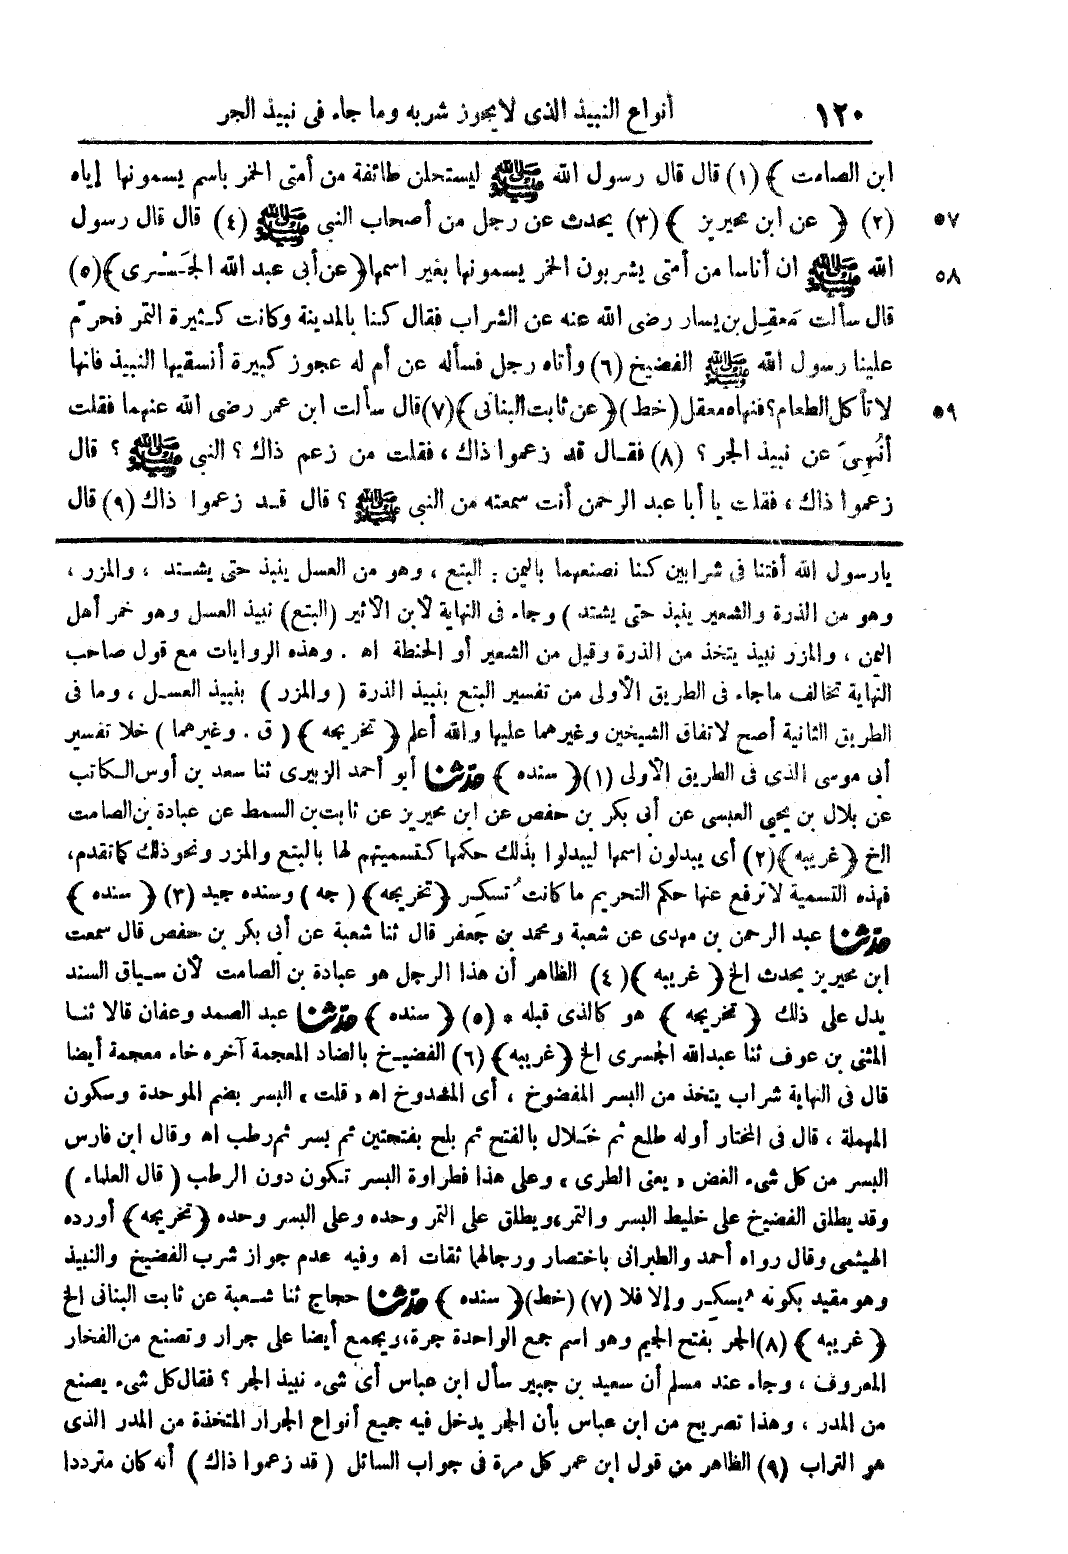 ١٢٠ أنواع النبيذ الذى لا يجوز شربه وما جاء فى نبيذ الجر
ابن الصامت ﴾ (١) قال قال رسول الله ﷺ ليستحلن طائفة من أمتى الخمر باسم يسمونها إياه
٥٧ (٢) ﴿ عن ابن محيريز ﴾ (٣) يحدث عن رجل من أصحاب النبي ﷺ (٤) قال قال رسول
٥٨ الله ﷺ ان أناسا من أمتى يشربون الخمر يسمونها بغير اسمها ﴿عن أبى عبد الله الجَسْرى﴾ (٥)
قال سألت مَعقِل بن يسار رضى الله عنه عن الشراب فقال كنا بالمدينة وكانت كثيرة التمر فحرّم
علينا رسول الله ﷺ الفضيخ (٦) وأتاه رجل فسأله عن أم له عجوز كبيرة أنسقيها النبيذ فانها
٥٩ لا تأكل الطعام؟ فنهاه معقل (خط) ﴿عن ثابت البنانى﴾ (٧) قال سألت ابن عمر رضى الله عنهما فقلت
أنُهِىَ عن نبيذ الجر ؟ (٨) فقال قد زعموا ذاك ، فقلت من زعم ذاك ؟ النبي ﷺ ؟ قال
زعموا ذاك ، فقلت يا أبا عبد الرحمن أنت سمعته من النبي ﷺ ؟ قال قد زعموا ذاك (٩) قال
يا رسول الله أفتنا فى شرابين كنا نصنعهما باليمن : البتع ، وهو من العسل ينبذ حتى يشتد ، والمزر ،
وهو من الذرة والشعير ينبذ حتى يشتد ) وجاء فى النهاية لابن الأثير (البتع) نبيذ العسل وهو خمر أهل
اليمن ، والمزر نبيذ يتخذ من الذرة وقيل من الشعير أو الحنطة اه . وهذه الروايات مع قول صاحب
النهاية تخالف ما جاء فى الطريق الأولى من تفسير البتع بنبيذ الذرة ( والمزر ) بنبيذ العسل ، وما فى
الطريق الثانية أصح لاتفاق الشيخين وغيرهما عليها والله أعلم ﴿ تخريجه ﴾ ( ق . وغيرهما ) خلا تفسير
أبى موسى الذى فى الطريق الأولى (١) ﴿ سنده ﴾ حدّثنا أبو أحمد الزبيرى ثنا سعد بن أوس الكاتب
عن بلال بن يحيى العبسى عن أبى بكر بن حفص عن ابن محيريز عن ثابت بن السمط عن عبادة بن الصامت
الخ ﴿غريبه﴾ (٢) أى يبدلون اسمها ليبدلوا بذلك حكمها كتسميتهم لها بالبتع والمزر ونحو ذلك كما تقدم،
فهذه التسمية لا ترفع عنها حكم التحريم ما كانت تُسكر ﴿تخريجه﴾ ( جه ) وسنده جيد (٣) ﴿ سنده ﴾
حدّثنا عبد الرحمن بن مهدى عن شعبة ومحمد بن جعفر قال ثنا شعبة عن أبى بكر بن حفص قال سمعت
ابن محيريز يحدث الخ ﴿ غريبه ﴾ (٤) الظاهر أن هذا الرجل هو عبادة بن الصامت لأن سياق السند
يدل على ذلك ﴿ تخريجه ﴾ هو كالذى قبله * (٥) ﴿ سنده ﴾ حدّثنا عبد الصمد وعفان قالا ثنا
المثنى بن عوف ثنا عبدالله الجسرى الخ ﴿غريبه﴾ (٦) الفضيخ بالضاد المعجمة آخره خاء معجمة أيضا
قال فى النهاية شراب يتخذ من البسر المفضوخ ، أى المشدوخ اه « قلت » البسر بضم الموحدة وسكون
المهملة ، قال فى المختار أوله طلع ثم خَلال بالفتح ثم بلح بفتحتين ثم بسر ثم رطب اه وقال ابن فارس
البسر من كل شىء الغض « يعنى الطرى » وعلى هذا فطراوة البسر تكون دون الرطب ( قال العلماء )
وقد يطلق الفضيخ على خليط البسر والتمر، ويطلق على التمر وحده وعلى البسر وحده ﴿تخريجه﴾ أورده
الهيثمى وقال رواه أحمد والطبرانى باختصار ورجالها ثقات اه وفيه عدم جواز شرب الفضيخ والنبيذ
وهو مقيد بكونه يُسكر وإلا فلا (٧) (خط) ﴿ سنده ﴾ حدّثنا حجاج ثنا شعبة عن ثابت البنانى الخ
﴿ غريبه ﴾ (٨) الجر بفتح الجيم وهو اسم جمع الواحدة جرة، ويجمع أيضا على جرار وتصنع من الفخار
المعروف ، وجاء عند مسلم أن سعيد بن جبير سأل ابن عباس أى شىء نبيذ الجر ؟ فقال كل شىء يصنع
من المدر ، وهذا تصريح من ابن عباس بأن الجر يدخل فيه جميع أنواع الجرار المتخذة من المدر الذى
هو التراب (٩) الظاهر من قول ابن عمر كل مرة فى جواب السائل ( قد زعموا ذاك ) أنه كان مترددا